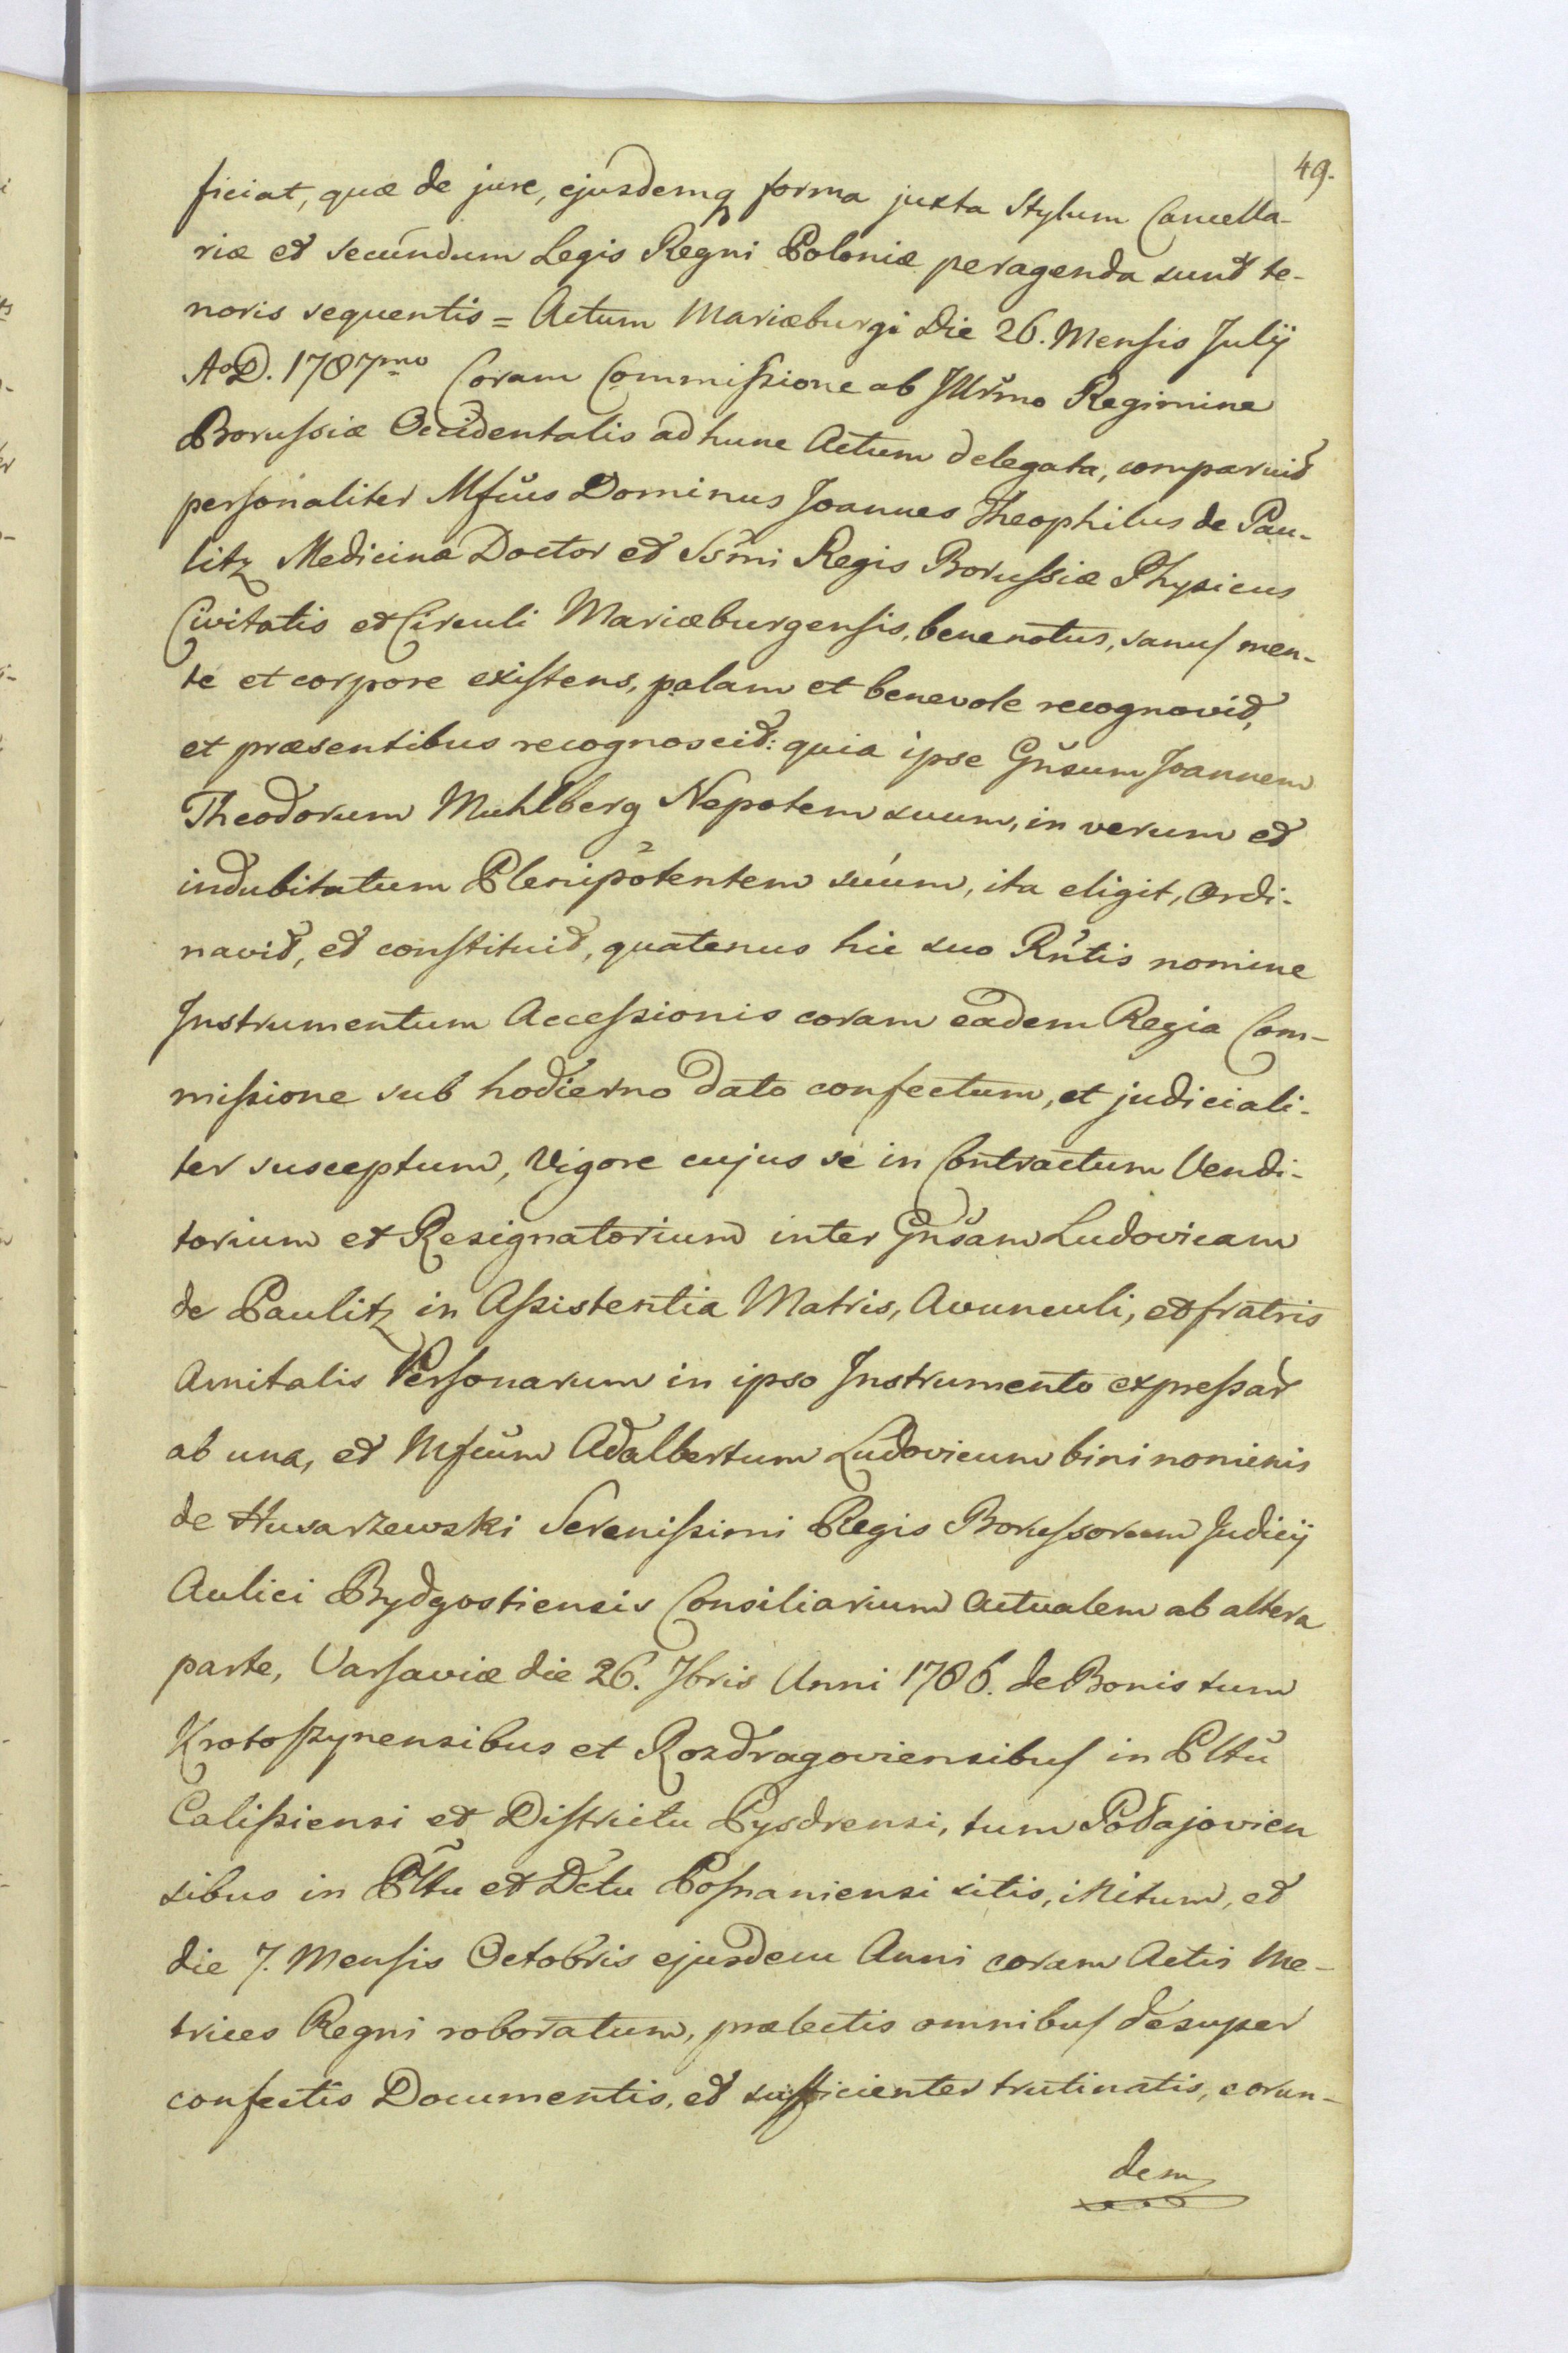 49.
ficiat, quæ de jure, ejusdemq forma juxta Stylum Cancella-
riæ et secundum Legis Regni Poloniæ peragenda sunt te-
noris sequentis = Actum Mariæburgi die 26. Mensis Julij
AoD. 1787mo Coram Commissione ab Jllr̃mo Regimine
Borussiæ Occidentalis ad hunc Actum delegata, comparuit
personaliter Mfcũs Dominus Joannes Theophilus de Pau-
litz Medicinæ Doctor et Ss̃mi Regis Borussiæ Physicus
Civitatis et Circuli Mariæburgensis, bene notus, sanus men-
te et corpore existens, palam et benevole recognovit,
et præsentibus recognoscit: quia ipse Gñsum Joannem
Theodorum Muhlberg Nepotem suum, in verum et
indubitatum Plenipotentem suum, ita eligit, Ordi-
navit, et constituit, quatenus hic suo Rñtis nomine
Jnstrumentum Accessionis coram eadem Regia Com-
missione sub hodierno dato confectum, et judiciali-
ter susceptum, Vigore cujus se in Contractum Vendi-
torium et Resignatorium inter Gñsam Ludovicam
de Paulitz in Assistentia Matris, Avunculi, et fratris
Amitalis Personarum in ipso Jnstrumento expressar
ab una, et Mfcũm Adalbertum Ludovicum bini nominis
de Husarzewski Serenissimi Regis Borussorum Judicij
Aulici Bydgostiensis Consiliarium Actualem ab altera
parte, Varsaviæ die 26. 7bris Anni 1786. de Bonis tum
Krotoszynensibus et Rozdragoviensibus in Plttũ
Calissiensi et Districtu Pysdrensi, tum Podajovien
sibus in Plttũ et Dctũ Posnaniensi sitis, initum, et
die 7. Mensis Octobris ejusdem Anni coram Actis Me-
trices Regni roboratum, prælectis omnibus desuper
confectis Documentis, et sufficienter trutinatis, eorun-
dem